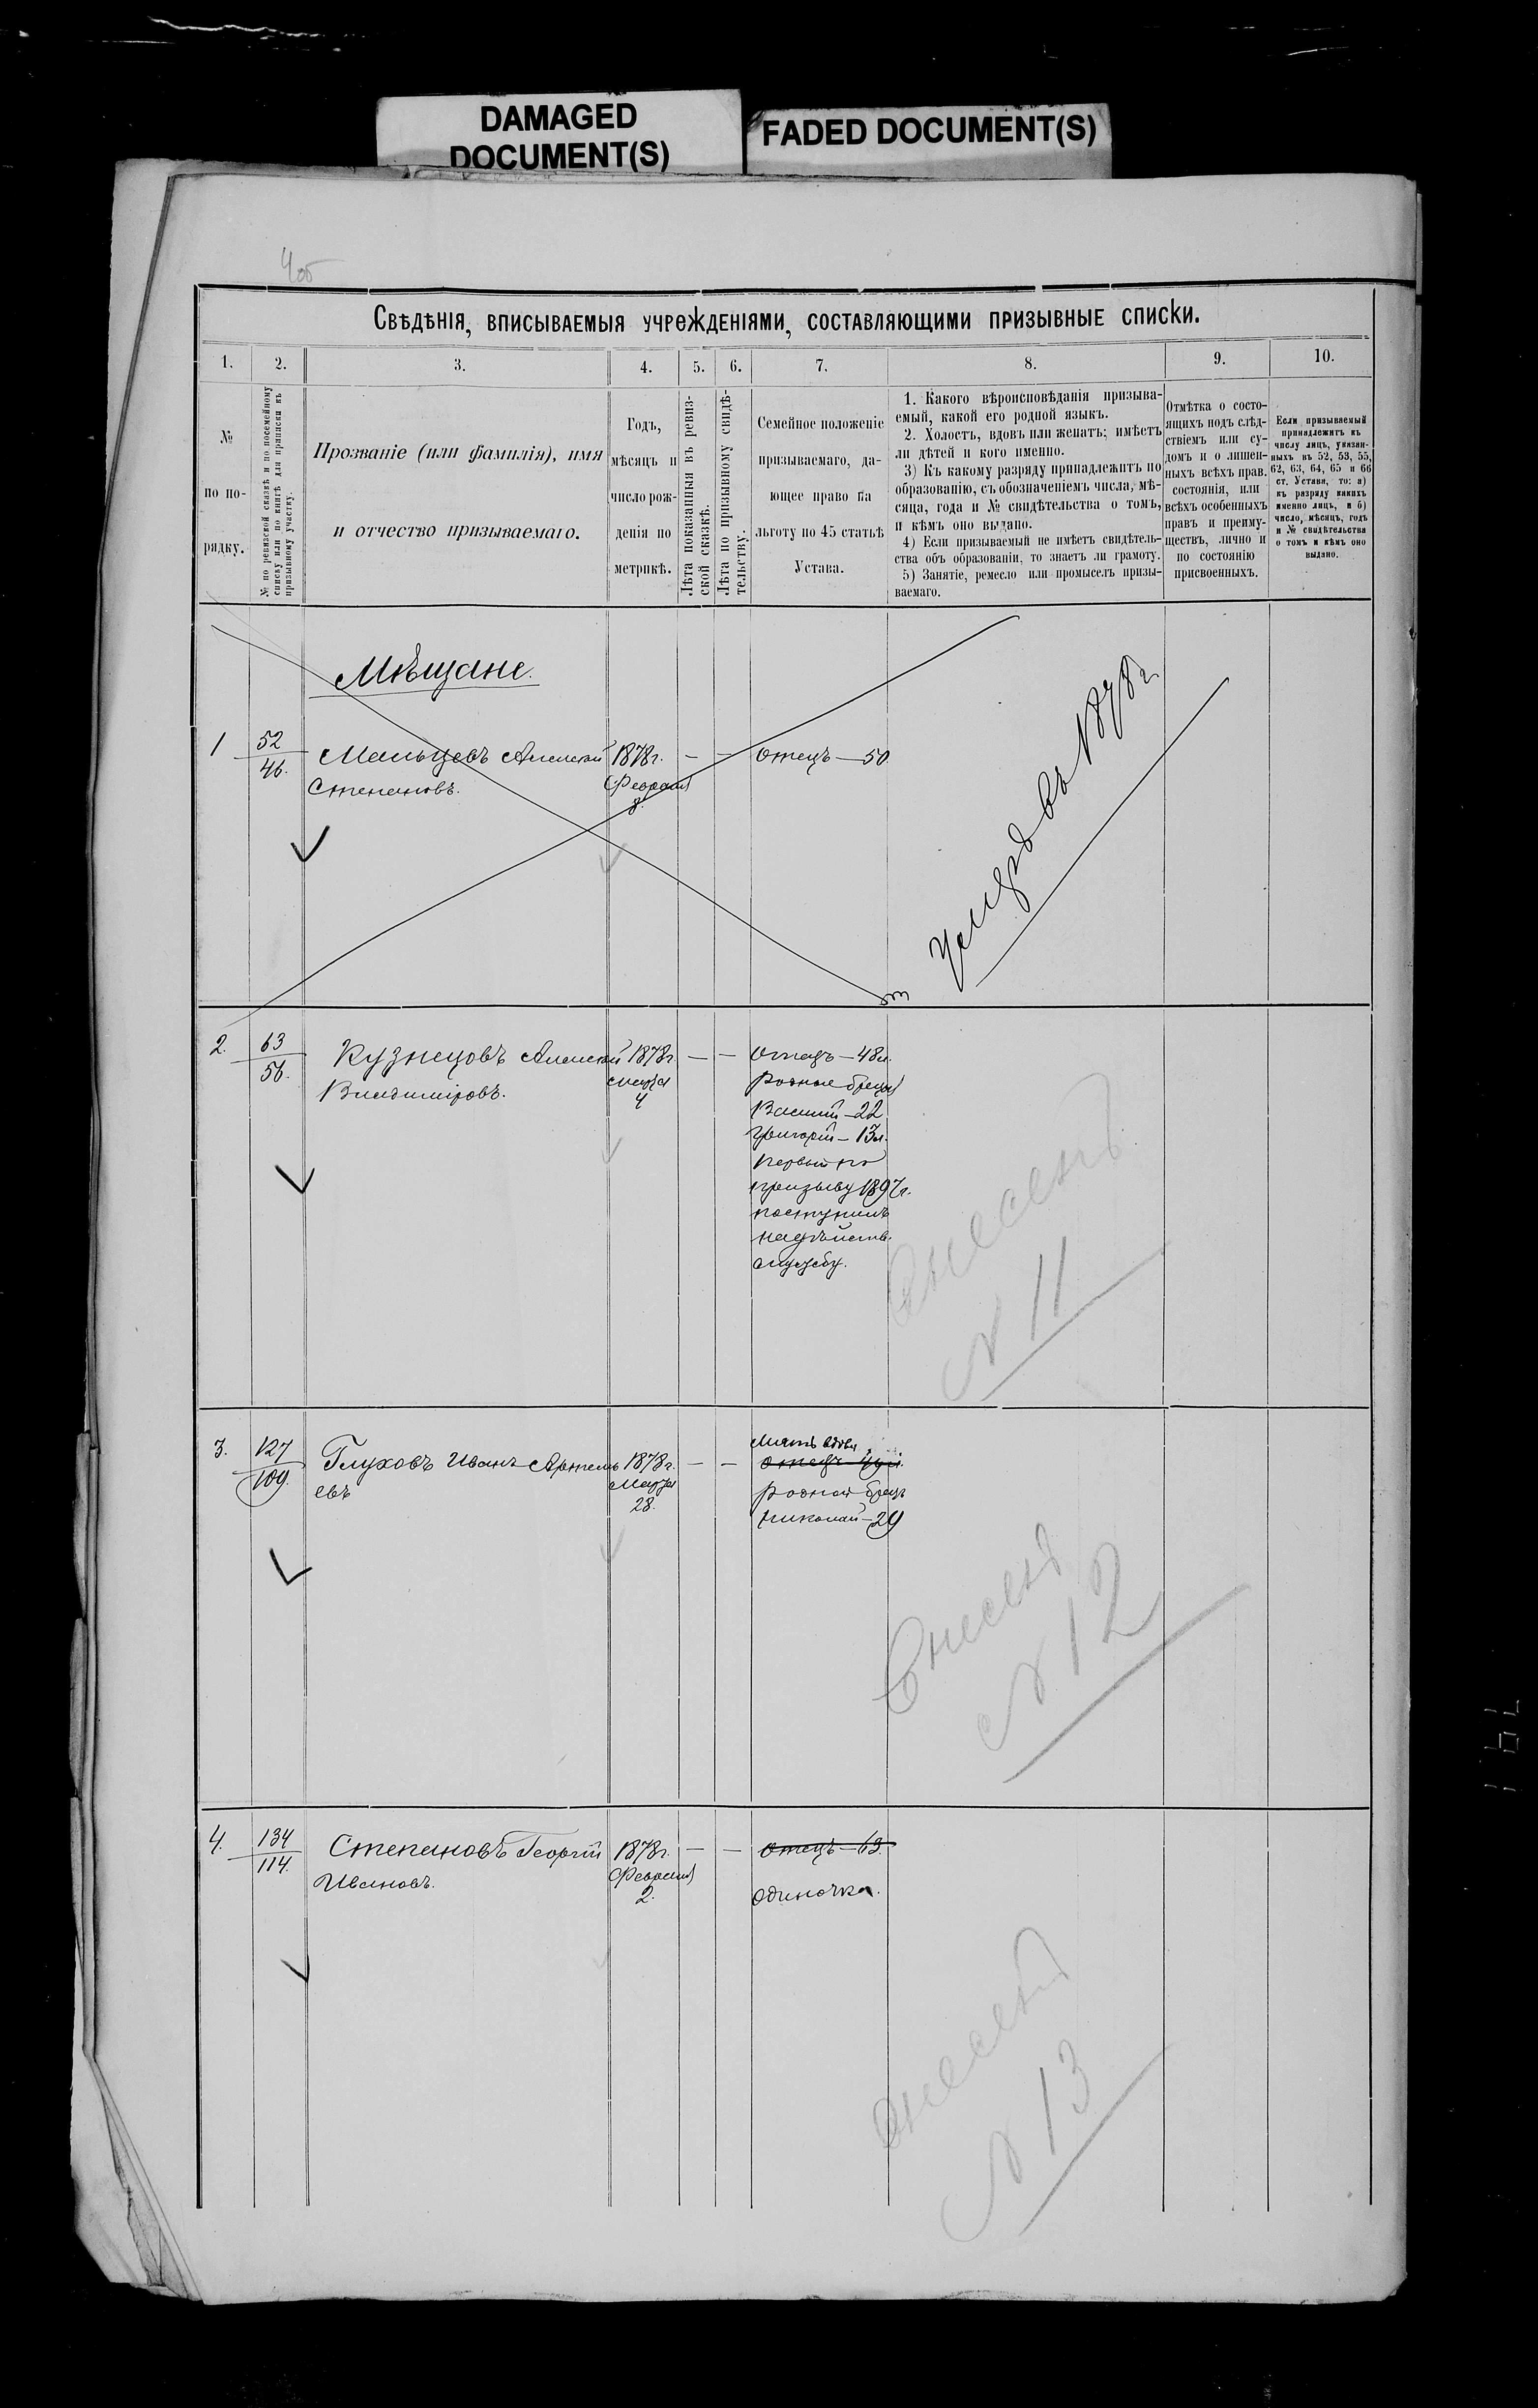 DAMAGED
DOCUMENT(S)
FADED DOCUMENT(S)
4об
Свѣдѣнія, вписываемыя учрежденіями, составляющими призывные списки.
1.
2.
3.
4.
5.
6.
7.
8.
9.
10.
№
по по-
рядку.
№ по ревизской сказкѣ и по посемейному
списку или по книгѣ для приписки къ
призывному участку.
Прозваніе (или фамилія), имя
и отчество призываемаго.
Годъ,
мѣсяцъ и
число рож-
денія по
метрикѣ.
Лѣта показанныя въ ревиз-
ской сказкѣ.
Лѣта по призывному свидѣ-
тельству.
Семейное положеніе
призываемаго, да-
ющее право на
льготу по 45 статьѣ
Устава.
1. Какого вѣроисповѣданія призыва-
емый, какой его родной языкъ.
2. Холостъ, вдовъ или женатъ; имѣетъ
ли дѣтей и кого именно.
3) Къ какому разряду принадлежитъ по
образованію, съ обозначеніемъ числа, мѣ-
сяца, года и № свидѣтельства о томъ,
и кѣмъ оно выдано.
4) Если призываемый не имѣетъ свидѣтель-
ства объ образованіи, то знаетъ ли грамоту.
5) Занятіе, ремесло или промыселъ призы-
ваемаго.
Отмѣтка о состо-
ящихъ подъ слѣд-
ствіемъ или су-
домъ и о лишен-
ныхъ всѣхъ прав.
состоянія, или
всѣхъ особенныхъ
правъ и преиму-
ществъ, лично и
по состоянію
присвоенныхъ.
Если призываемый
принадлежитъ къ
числу лицъ, указан-
ныхъ въ 52, 53, 55,
62, 63, 64, 65 и 66
ст. Устава, то: а)
къ разряду какихъ
именно лицъ, и б)
число, мѣсяцъ, годъ
и № свидѣтельства
о томъ и кѣмъ оно
выдано.
Мѣщане.
1
52
46.
Мальцевъ Алексѣй
Степановъ.
1878г.
Февраля
8.
—
—
Отецъ—50
Умеръ въ 1878г.
2.
63
56.
Кузнецовъ Алексѣй
Владиміровъ.
1878г.
Марта
4
—
—
Отецъ—48л.
родные братья
Василій—22
Григорій—13л.
первый по
призыву 1897г.
поступилъ
на дѣйств.
службу.
Внесенъ
№ 11
3.
127
109.
Глуховъ Иванъ Артемь
евъ
1878г.
Марта
28.
—
—
Мать вдова,
родной братъ
Николай—29
Внесенъ
№ 12
4.
134
114.
Степановъ Георгій
Ивановъ.
1878г.
Февраля
2.
—
—
Отецъ—63.
Одиночка.
Внесенъ
№ 13